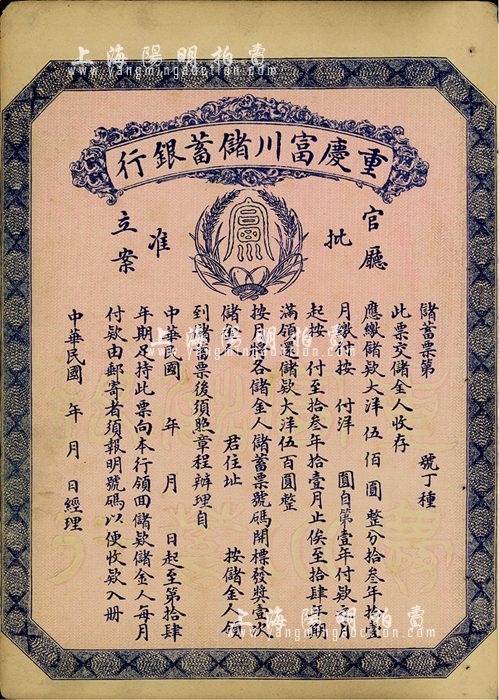 上海陽明拍賣
www.yangmingauction.com
重慶富川儲蓄銀行
官廳
批
准
立案
儲蓄票第 號丁種
此票交儲金人收存
應繳儲欵大洋伍佰圓整分拾叁年拾壹
月繳付按 付洋 圓自第壹年付欵之
起按 付至拾叁年拾壹月止俟至拾肆年期
滿領還儲欵大洋伍百圓整
按月
各儲金人儲蓄票號碼開標發獎壹次
儲金人 君住址 按儲金人領
到儲蓄票後須照章程辦理自
中華民國 年 月 日起至第拾肆
年期足持此票向本行領回儲欵儲金人每月
付欵由郵寄者須報明號碼以便收欵入册
中華民國 年 月 日經理
上海陽明拍賣
www.yangmingauction.com